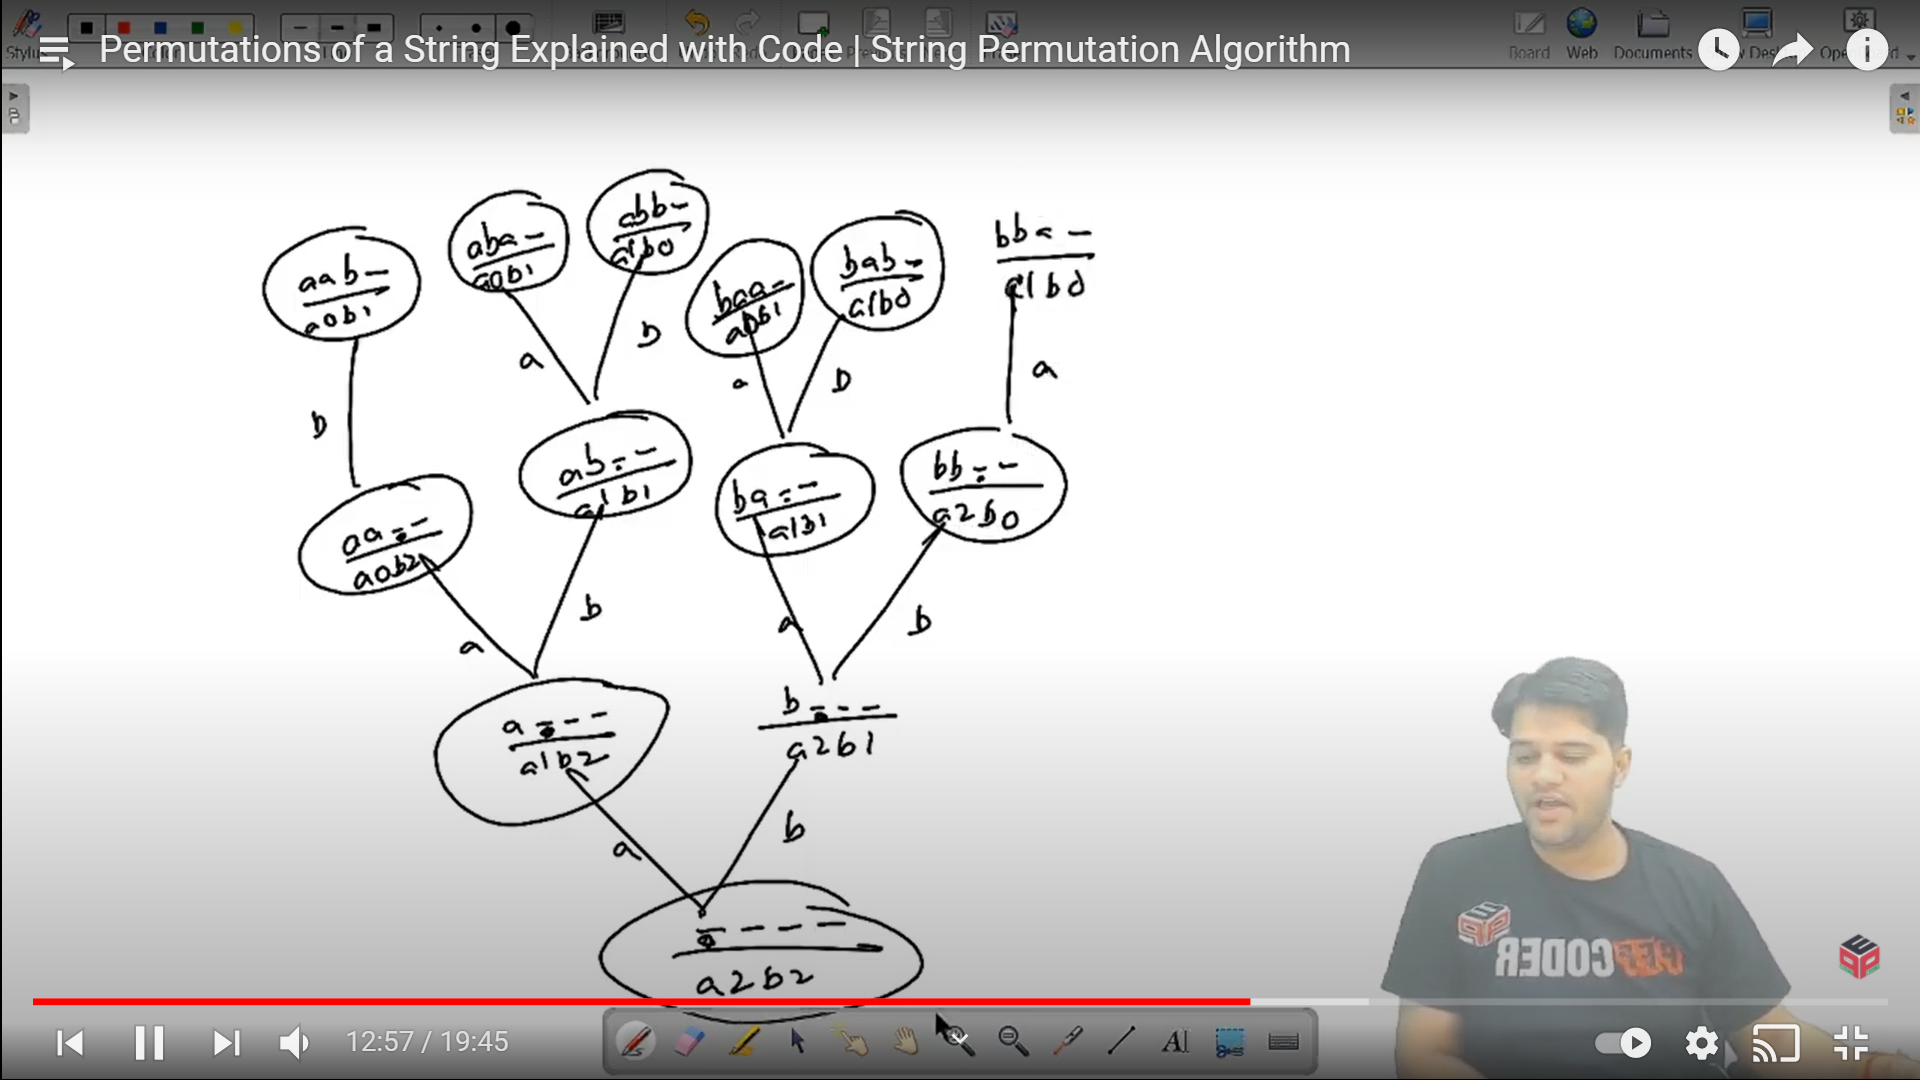 Permutations of a String Explained with Code | String Permutation Algorithm
Board Web Documents
abb-
a1b0
aba-
a0b1
bba-
a1b0
bab-
a1b0
aab-
a0b1
baa-
a0b1
a
b
a
b
a
b
ab--
a1b1
bb--
a2b0
ba--
a1b1
aa--
a0b2
a
b
a
b
a---
a1b2
b---
a2b1
a
b
----
a2b2
PEPCODER
12:57 / 19:45
AI